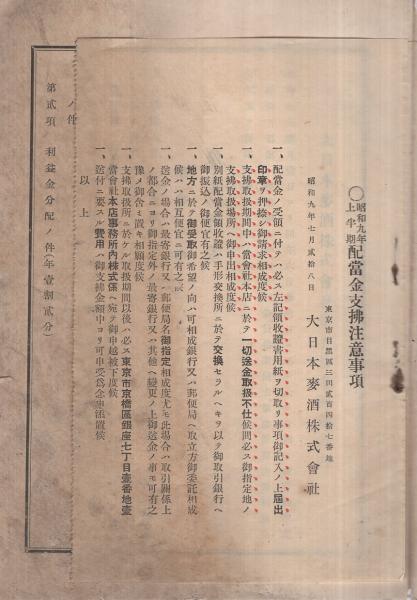 〇昭和九年上半期配當金支拂注意事項
昭和九年七月貳拾八日
東京市目黑區三田貳百四拾七番地
大日本麥酒株式會社
一、配當金ノ受領ニ付テハ必ス左記領收證書用紙ヲ切取リ事項御記入ノ上屆出
印章ヲ押捺シ御請求相成度候
一、支拂取扱期間中ハ當會社本店ニ於テ一切送金取扱不仕候間必ス御指定地ノ
支拂取扱場所ヘ御申出相成度候
一、別紙配當金領收證ハ手形交換所ニ於テ交換セラルヘキヲ以テ御取引銀行ヘ
御振込ノ御便宜有之候
一、地方ニ於テ御受取御希望ノ向ハ可相成銀行又ハ郵便局ヘ取立方御委託相成
候ハハ相互便宜ニ可有之候
一、送金ノ場合ハ最寄銀行又ハ郵便局名御指定相成度尤モ此場合ハ取引關係上
ノ都合ニヨリ御指定外ノ最寄銀行又ハ其他ヘ變更ノ上御送金ノ事モ可有之
豫メ御含ミ置キ相願度候
一、支拂取扱所ニ於ケル取扱期間以後ハ必ス東京市京橋區銀座七丁目壹番地壹
當會社本店事務所內株式係ヘ宛テ御申越被下度候
一、送付ニ要スル費用ハ御支拂金額中ヨリ可申受爲念申添置候
以上
ノ件
第貳項 利益金分配ノ件(年壹割貳分)